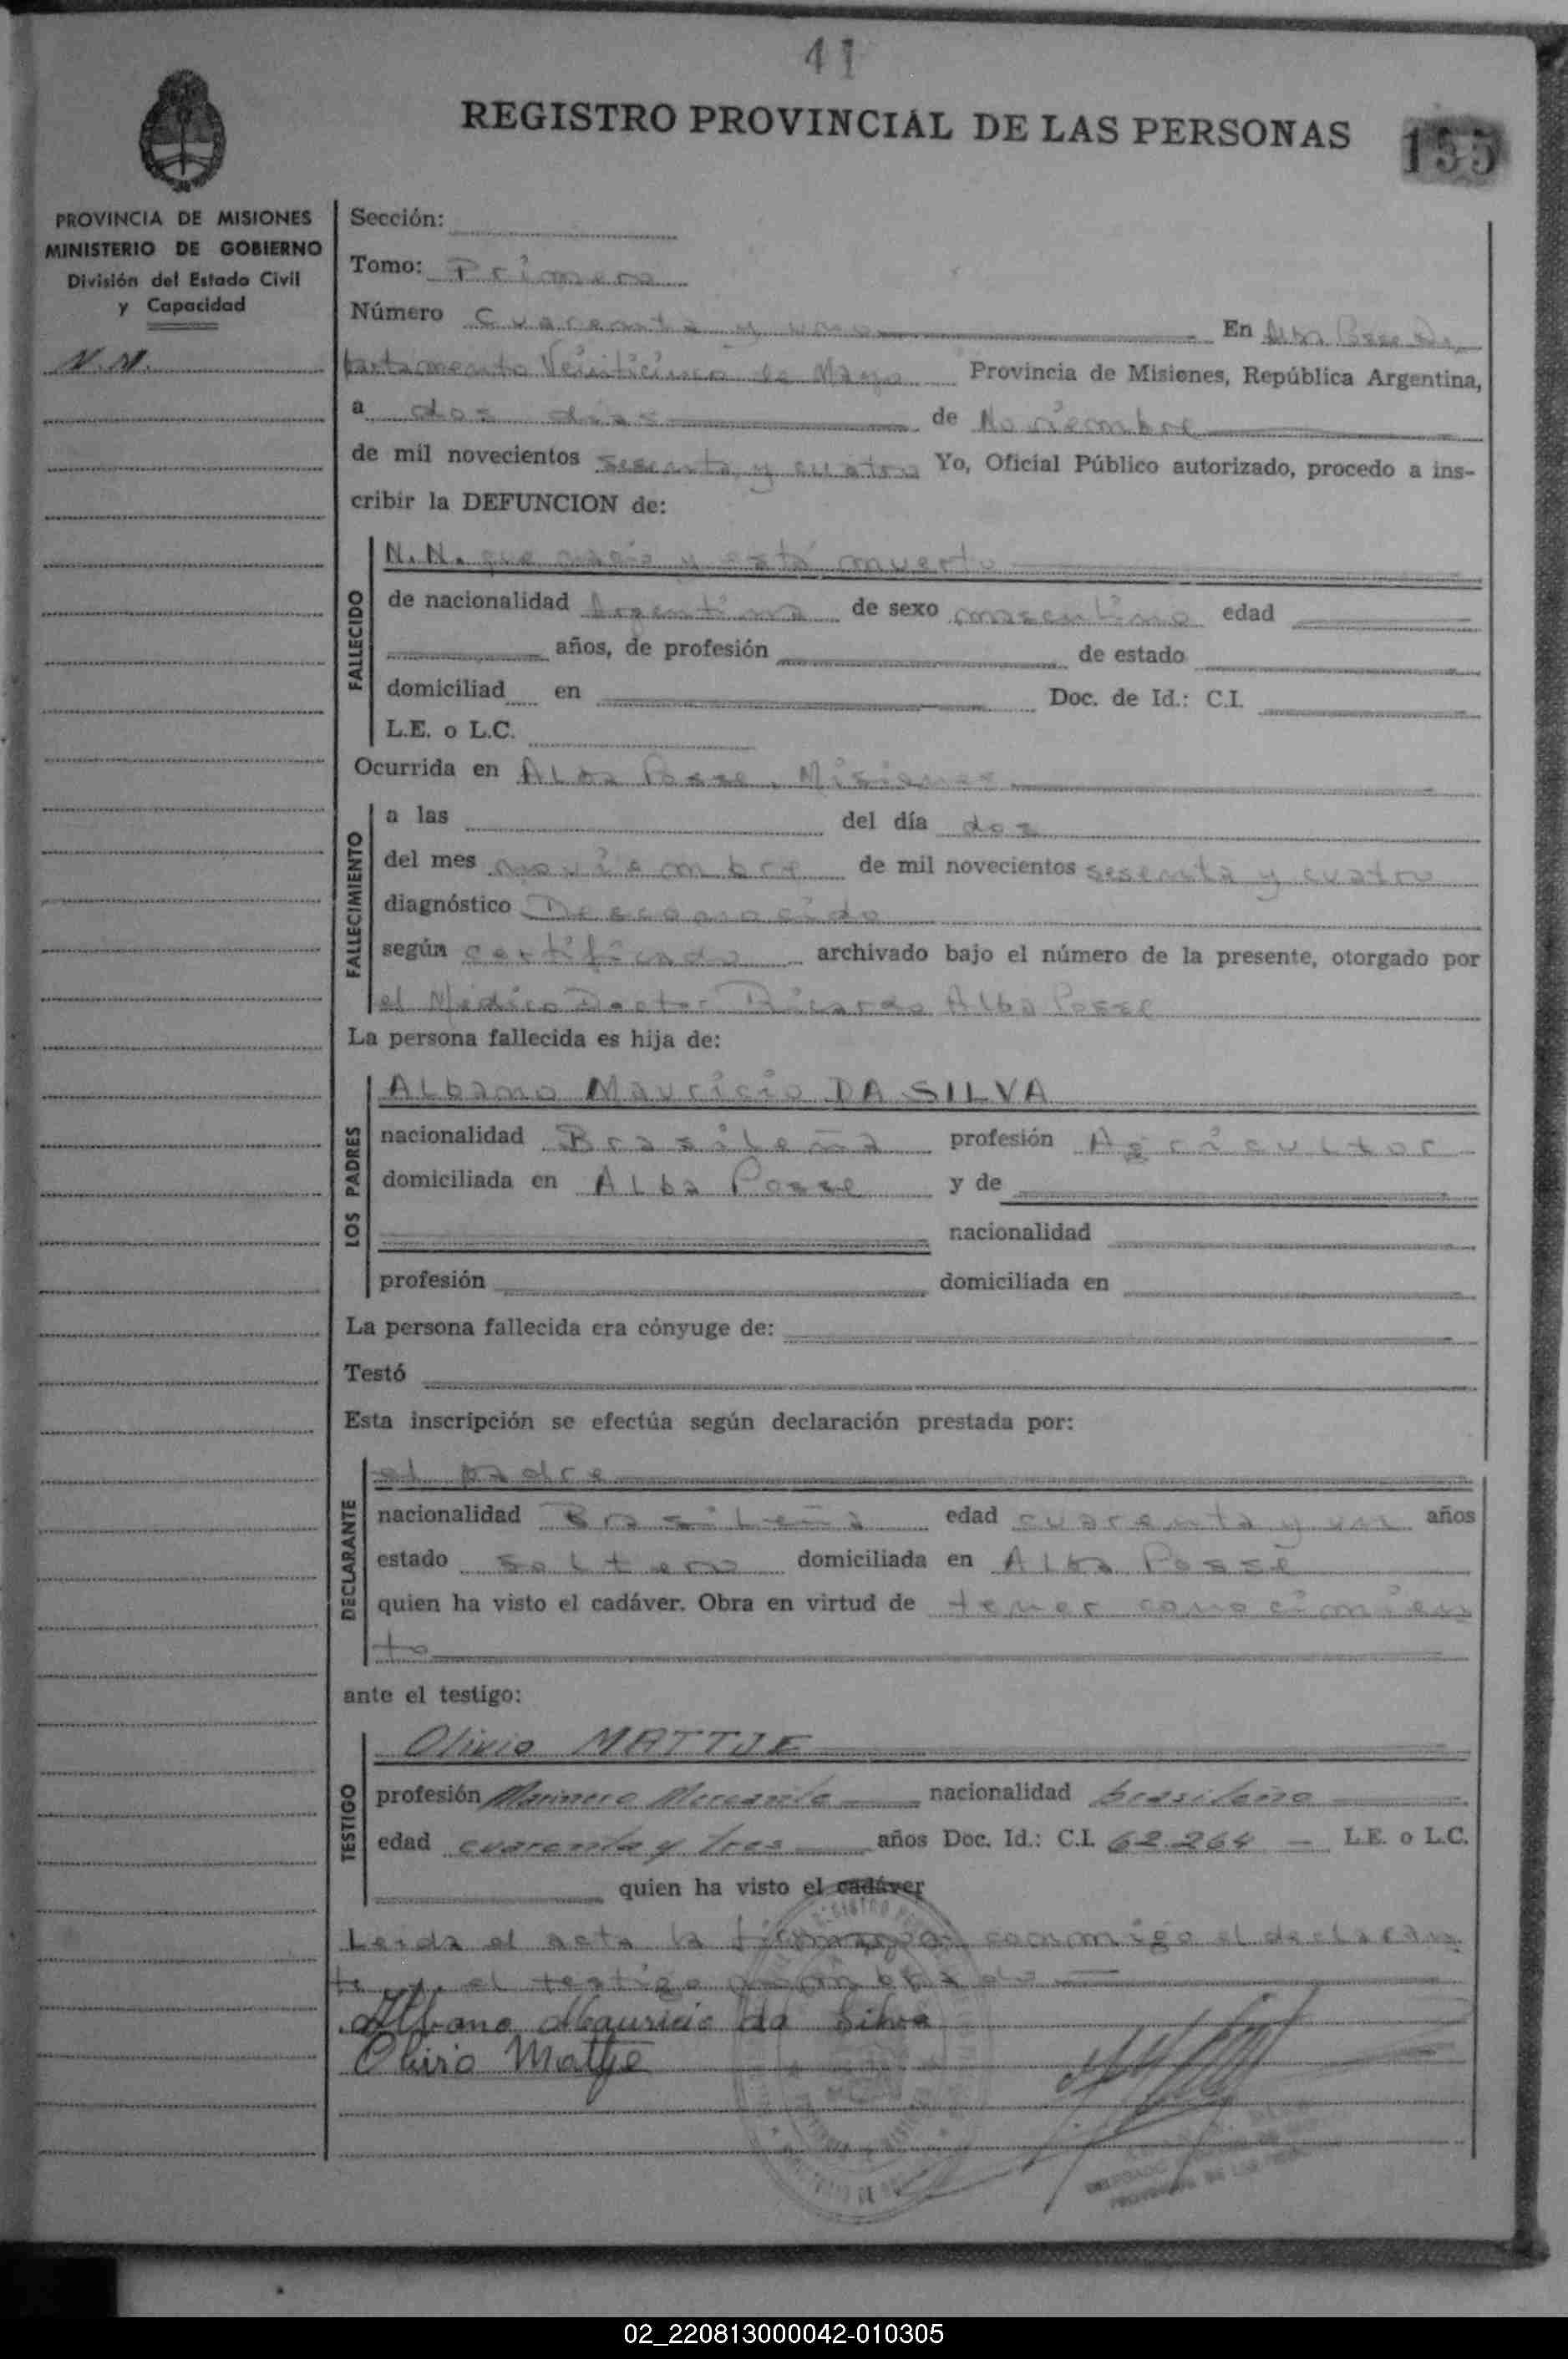 41
REGISTRO PROVINCIAL DE LAS PERSONAS
155
PROVINCIA DE MISIONES
MINISTERIO DE GOBIERNO
División del Estado Civil
y Capacidad
N.N.
Sección:
Tomo: Primero
Número Cuarenta y uno En Alba Posse De
partamento Veinticinco de Mayo Provincia de Misiones, República Argentina,
a dos dias de Noviembre
de mil novecientos sesenta y cuatro Yo, Oficial Público autorizado, procedo a ins-
cribir la DEFUNCION de:
FALLECIDO
N.N. que nacio y está muerto
de nacionalidad Argentina de sexo masculino edad
años, de profesión de estado
domiciliad en Doc. de Id.: C.I.
L.E. o L.C.
Ocurrida en Alba Posse, Misiones
FALLECIMIENTO
a las del día dos
del mes noviembre de mil novecientos sesenta y cuatro
diagnóstico Desconocido
según certificado archivado bajo el número de la presente, otorgado por
el Médico Doctor Ricardo Alba Posse
La persona fallecida es hija de:
LOS PADRES
Albano Mauricio DA SILVA
nacionalidad Brasileña profesión Agricultor
domiciliada en Alba Posse y de
nacionalidad
profesión domiciliada en
La persona fallecida era cónyuge de:
Testó
Esta inscripción se efectúa según declaración prestada por:
DECLARANTE
el padre
nacionalidad Brasileña edad cuarenta y un años
estado soltero domiciliada en Alba Posse
quien ha visto el cadáver. Obra en virtud de tener conocimien
to
ante el testigo:
TESTIGO
Olivio MATTJE
profesión Marinero Mercante nacionalidad brasileña
edad cuarenta y tres años Doc. Id.: C.I. 62.264 — L.E. o L.C.
quien ha visto el cadáver
Leida el acta la firman conmigo el declaran
te y el testigo nombrado
Albano Mauricio da Silva
Olivio Mattje
02_220813000042-010305